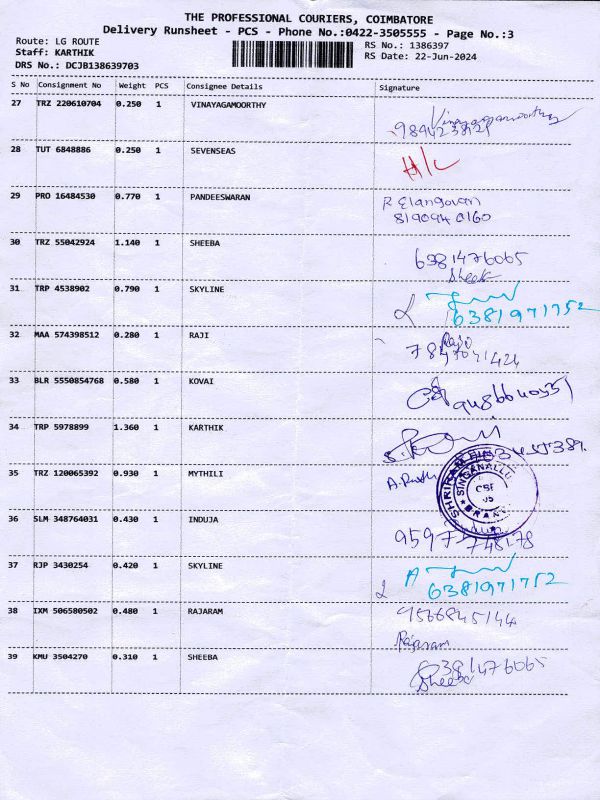 THE PROFESSIONAL COURIERS, COIMBATORE
Delivery Runsheet - PCS - Phone No.:0422-3505555 - Page No.:3
Route: LG ROUTE
Staff: KARTHIK
DRS No.: DCJB138639703
RS No.: 1386397
RS Date: 22-Jun-2024
S No Consignment No Weight PCS Consignee Details Signature
27 TRZ 220610704 0.250 1 VINAYAGAMOORTHY Vinayagamoorthy
28 TUT 6848886 0.250 1 SEVENSEAS H/L
29 PRO 16484530 0.770 1 PANDEESWARAN R Elangovan
819094 0160
30 TRZ 55042924 1.140 1 SHEEBA 6381476065
Sheeba
31 TRP 4538902 0.790 1 SKYLINE
6381971752
32 MAA 574398512 0.280 1 RAJI Raji
33 BLR 5550854768 0.580 1 KOVAI
34 TRP 5978899 1.360 1 KARTHIK
35 TRZ 120065392 0.930 1 MYTHILI
SINGANALLUR
BRANCH
36 SLM 348764031 0.430 1 INDUJA
37 RJP 3430254 0.420 1 SKYLINE
6381971752
38 IXM 506580502 0.480 1 RAJARAM 9566845144
Rajaram
39 KMU 3504270 0.310 1 SHEEBA 6381476065
Sheeba